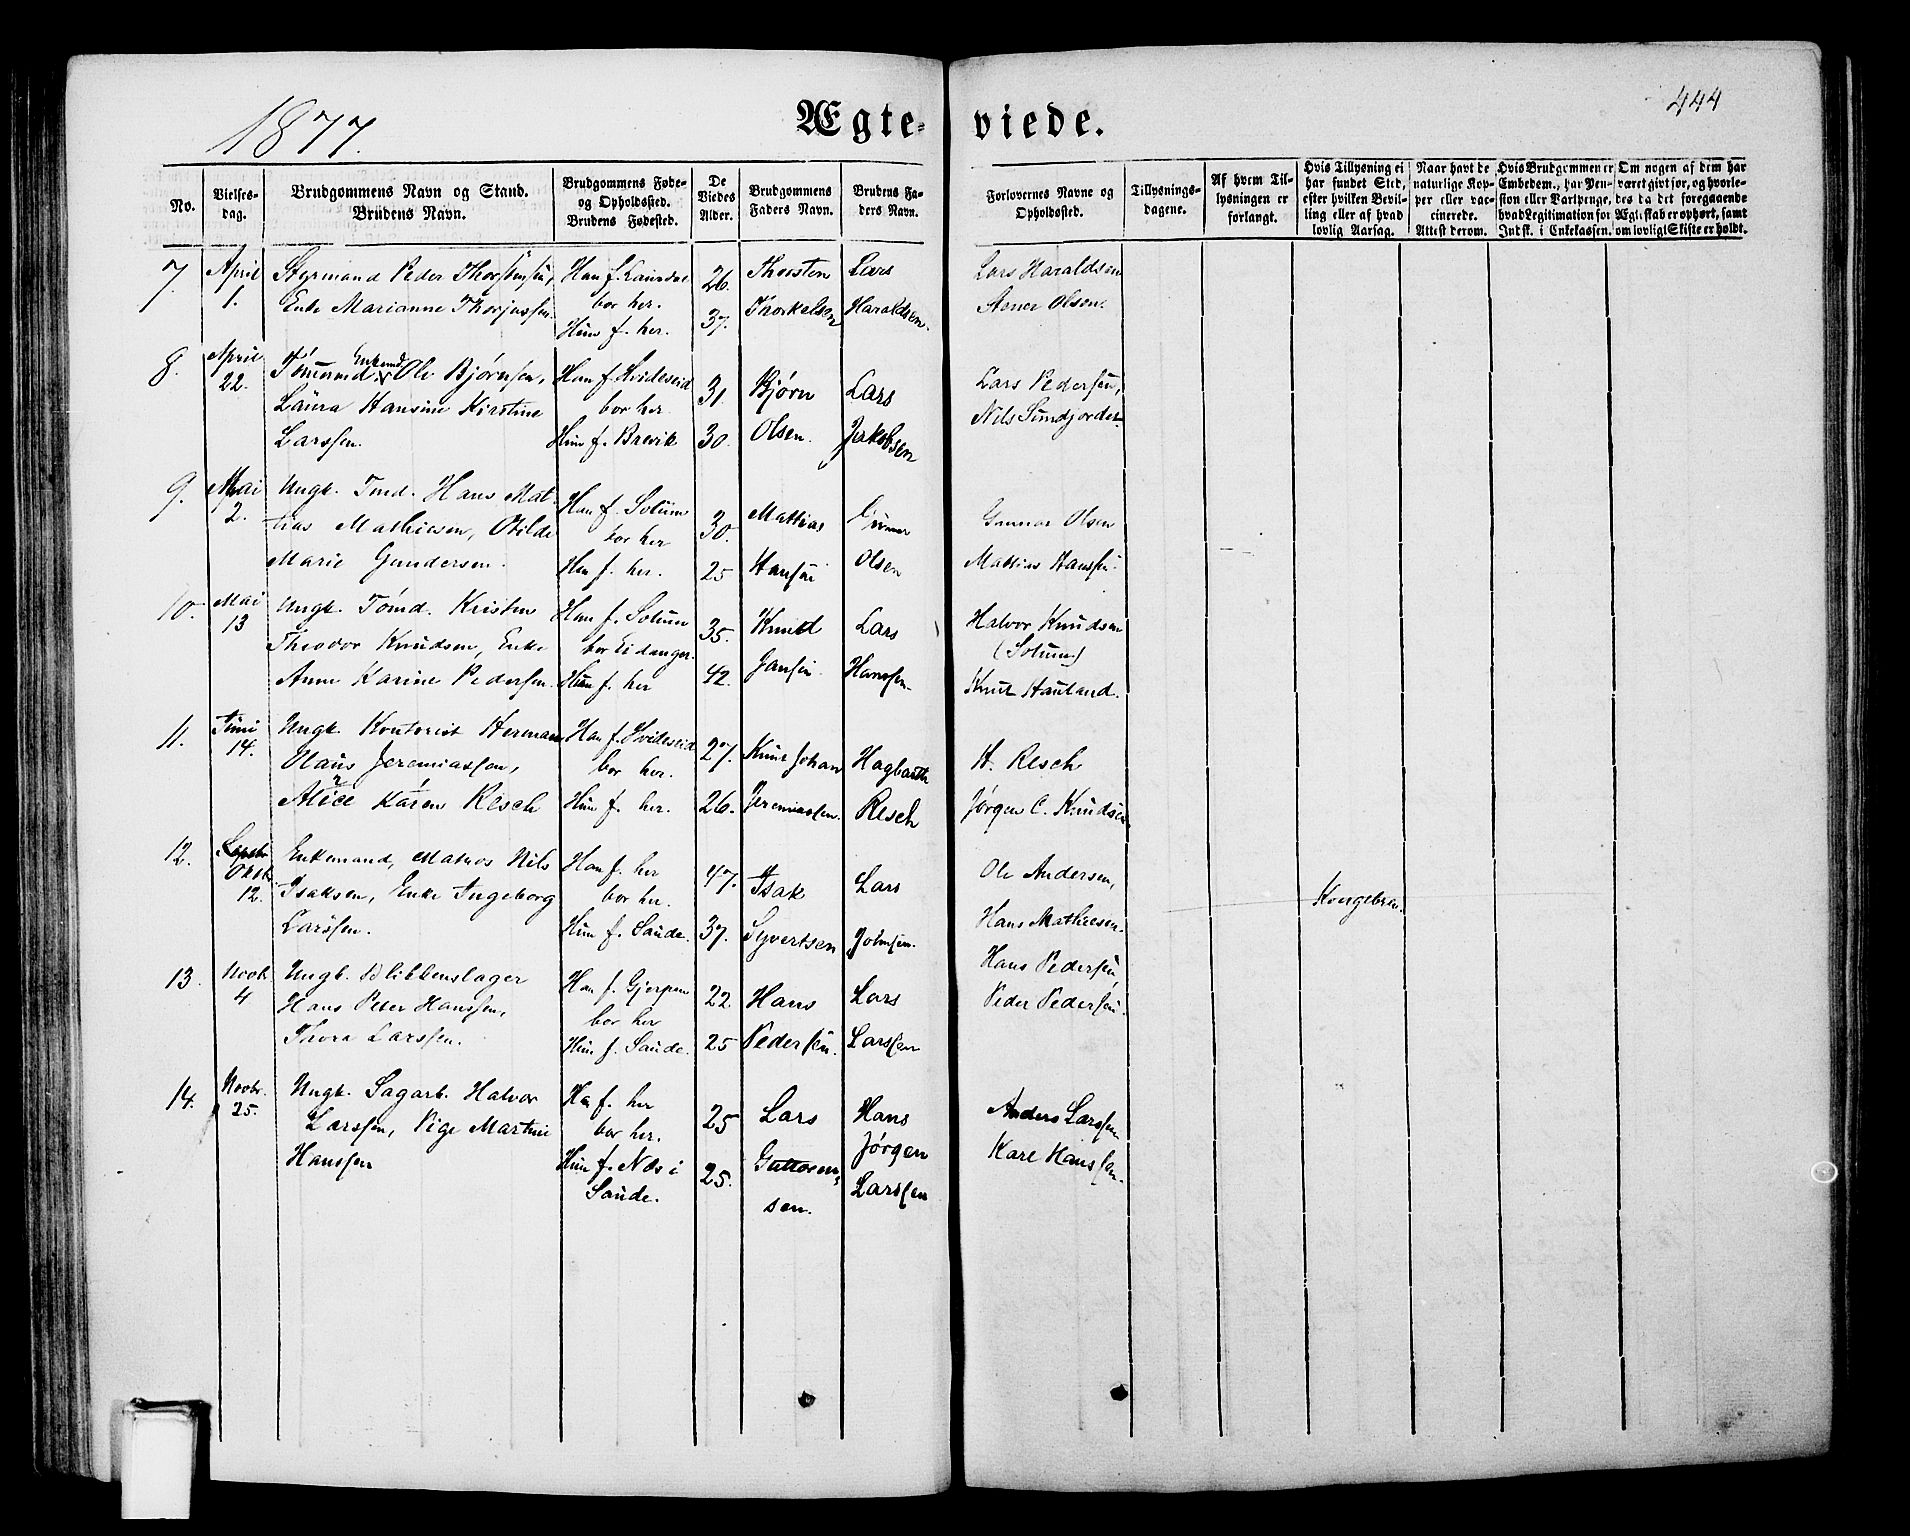 1877.
Ægte-
viede.
444
No.
Vielses-
dag.
Brudgommens Navn og Stand.
Brudens Navn.
Brudgommens Føde-
og Opholdssted.
Brudens Fødested.
De
Viedes
Alder.
Brudgommens
Faders Navn.
Brudens Fa-
ders Navn.
Forlovernes Navne og
Opholdssted.
Tillysnings-
dagene.
Af hvem Til-
lysningen er
forlangt.
Hvis Tillysning ei
har fundet Sted,
efter hvilken Bevil-
ling eller af hvad
lovlig Aarsag.
Naar havt de
naturlige Kop-
per eller vac-
cinerede.
Attest derom.
Hvis Brudgommen er
Embedsm., har Pen-
sion eller Vartpenge,
hvad Legitimation for
Indsk. i Enkekassen.
Om nogen af dem har
været gift før, og hvorle-
des da det foregaaende
Ægteskab er ophørt, samt
om lovligt Skifte er holdt.
7. April 1.
Styrmand Peder Thorstensen,
Enke Marianne Thorjussen.
Han f. Laurdal
bor her.
Hun f. her.
26.
37.
Thorsten
Thorkelsen
Lars
Haraldsen.
Lars Haraldsen
Abner Olsen.
8. April 22.
Tømmd. Enkemd. Ole Bjørnsen,
Laura Hansine Kirstine
Larssen.
Han f. Hvideseid
bor her.
Hun f. Brevik
31.
30.
Bjørn
Olsen.
Lars
Jakobsen
Lars Pedersen,
Nils
9. Mai 2.
Ungk. Tmd. Hans Mat-
tias Mathiesen, Otilde
Marie Gundersen.
Han f. Solum
bor her
Hun f. her.
30.
25
Mattias
Hansen
Gunnar
Olsen
Gunnar Olsen
Mattias Hanssen.
10. Mai 13
Ungk. Tømd. Kristen
Theodor Knudsen, Enke
Anne Karine Pedersen.
Han f. Solum
bor Eidanger.
Hun f. her
35.
42.
Knud
Jansen.
Lars
Hanssen.
Halvor Knudsen
(Solum)
Knut Hauland.
11. Juni 14.
Ungk. Kontorist Herman
Claus Jeremiassen,
Alice Karen Resch
Han f. Hvideseid
bor her.
Hun f. her.
27.
26.
Knut Johan
Jeremiassen.
Hagbarth
Resch
H. Resch
Jørgen C. Knudsen
12. Septb. Oktb. 12.
Enkemand, Matros Nils
Isaksen, Enke Ingeborg
Larssen.
Han f. her
bor her.
Hun f. Saude.
47.
37.
Isak
Syvertsen
Lars
Johnsen.
Ole Andersen,
Hans Mathiesen.
Kongebrev.
13. Novb. 4
Ungk. Blikkenslager
Hans Peter Hanssen,
Thora Larssen.
Han f. Gjerpen
bor her
Hun f. Saude.
22.
25
Hans
Pedersen.
Lars
Larssen
Hans Pedersen,
Peder Pedersen.
14. Novbr. 25.
Ungk. Sagarb. Halvor
Larssen, Pige Martine
Hanssen
Han f. her
bor her.
Hun f. Næs i
Saude.
25
25.
Lars
Guttorm-
sen.
Hans
Jørgen
Larssen
Anders Larssen
Karl Hanssen.